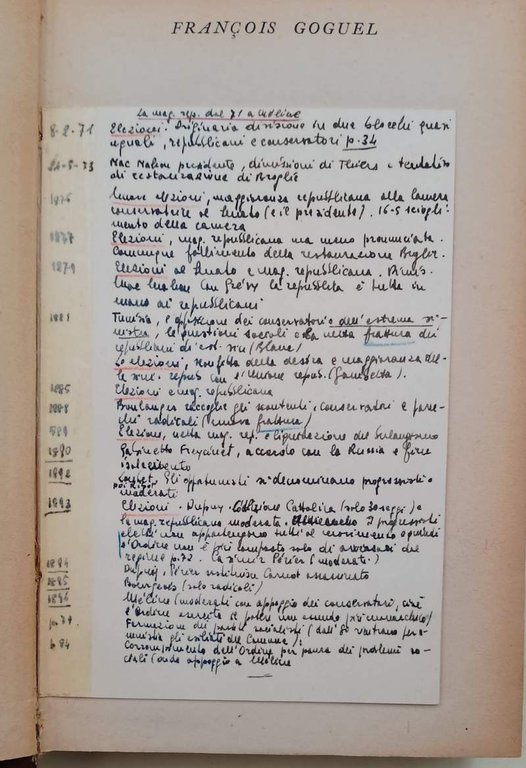 FRANÇOIS GOGUEL
La mag. rep. dal 71 a Méline
8-2-71 Elezioni. Originaria divisione in due blocchi quasi
uguali, repubblicani e conservatori p.34
24-5-73 Mac Mahon presidente, dimissioni di Thiers e tentativo
di restaurazione di Broglie
1876 Nuove elezioni, maggioranza repubblicana alla camera
conservatrice al Senato (e il presidente). 16-5 sciogli-
mento della camera
1877 Elezioni, mag. repubblicana ma meno pronunciata.
Comunque fallimento della restaurazione
1879 Elezioni al Senato e mag. repubblicana. Dimis.
Mac Mahon con Grévy la repubblica è tutta in
mano ai repubblicani
1881 Tunisia, opposizione dei conservatori e dell'estrema si-
nistra, le questioni sociali nella frattura dei
repubblicani di est. sin (Blanc)
elezioni, sconfitta della destra e maggioranza del-
le sin. repub con l'Unione repub. (Gambetta).
1885 Elezioni e mag. repubblicana
1888 Boulanger raccoglie gli scontenti, conservatori e parec-
chi radicali (nuova frattura)
889 Elezioni, netta mag. rep. e liquidazione del
1890 Gabinetto Freycinet, accordo con la Russia e fine
isolamento
1892 Loubet. Gli opportunisti si denominano progressisti o
poi Ribot moderati
1893 Elezioni. Dupuy. Cattolica (solo 30 seggi) e
la mag. repubblicana moderata. I progressisti
non appartengono tutti al movimento e quindi
l'Ordine non è più composto solo di avversari del
regime p.72. Casimir Périer (moderati)
1894 Dupuy, Périer sostituisce Carnot assassinato
1895 Bourgeois (solo radicali)
1896 Méline (moderati con appoggio dei conservatori, cioè
l'Ordine esercita il potere non essendo più monarchico)
p.79 Formazione dei partiti socialisti (dall'80 rientrano per
gli esiliati della Comune);
p 84 dell'Ordine per paura dei problemi so-
ciali (onde appoggio a Méline